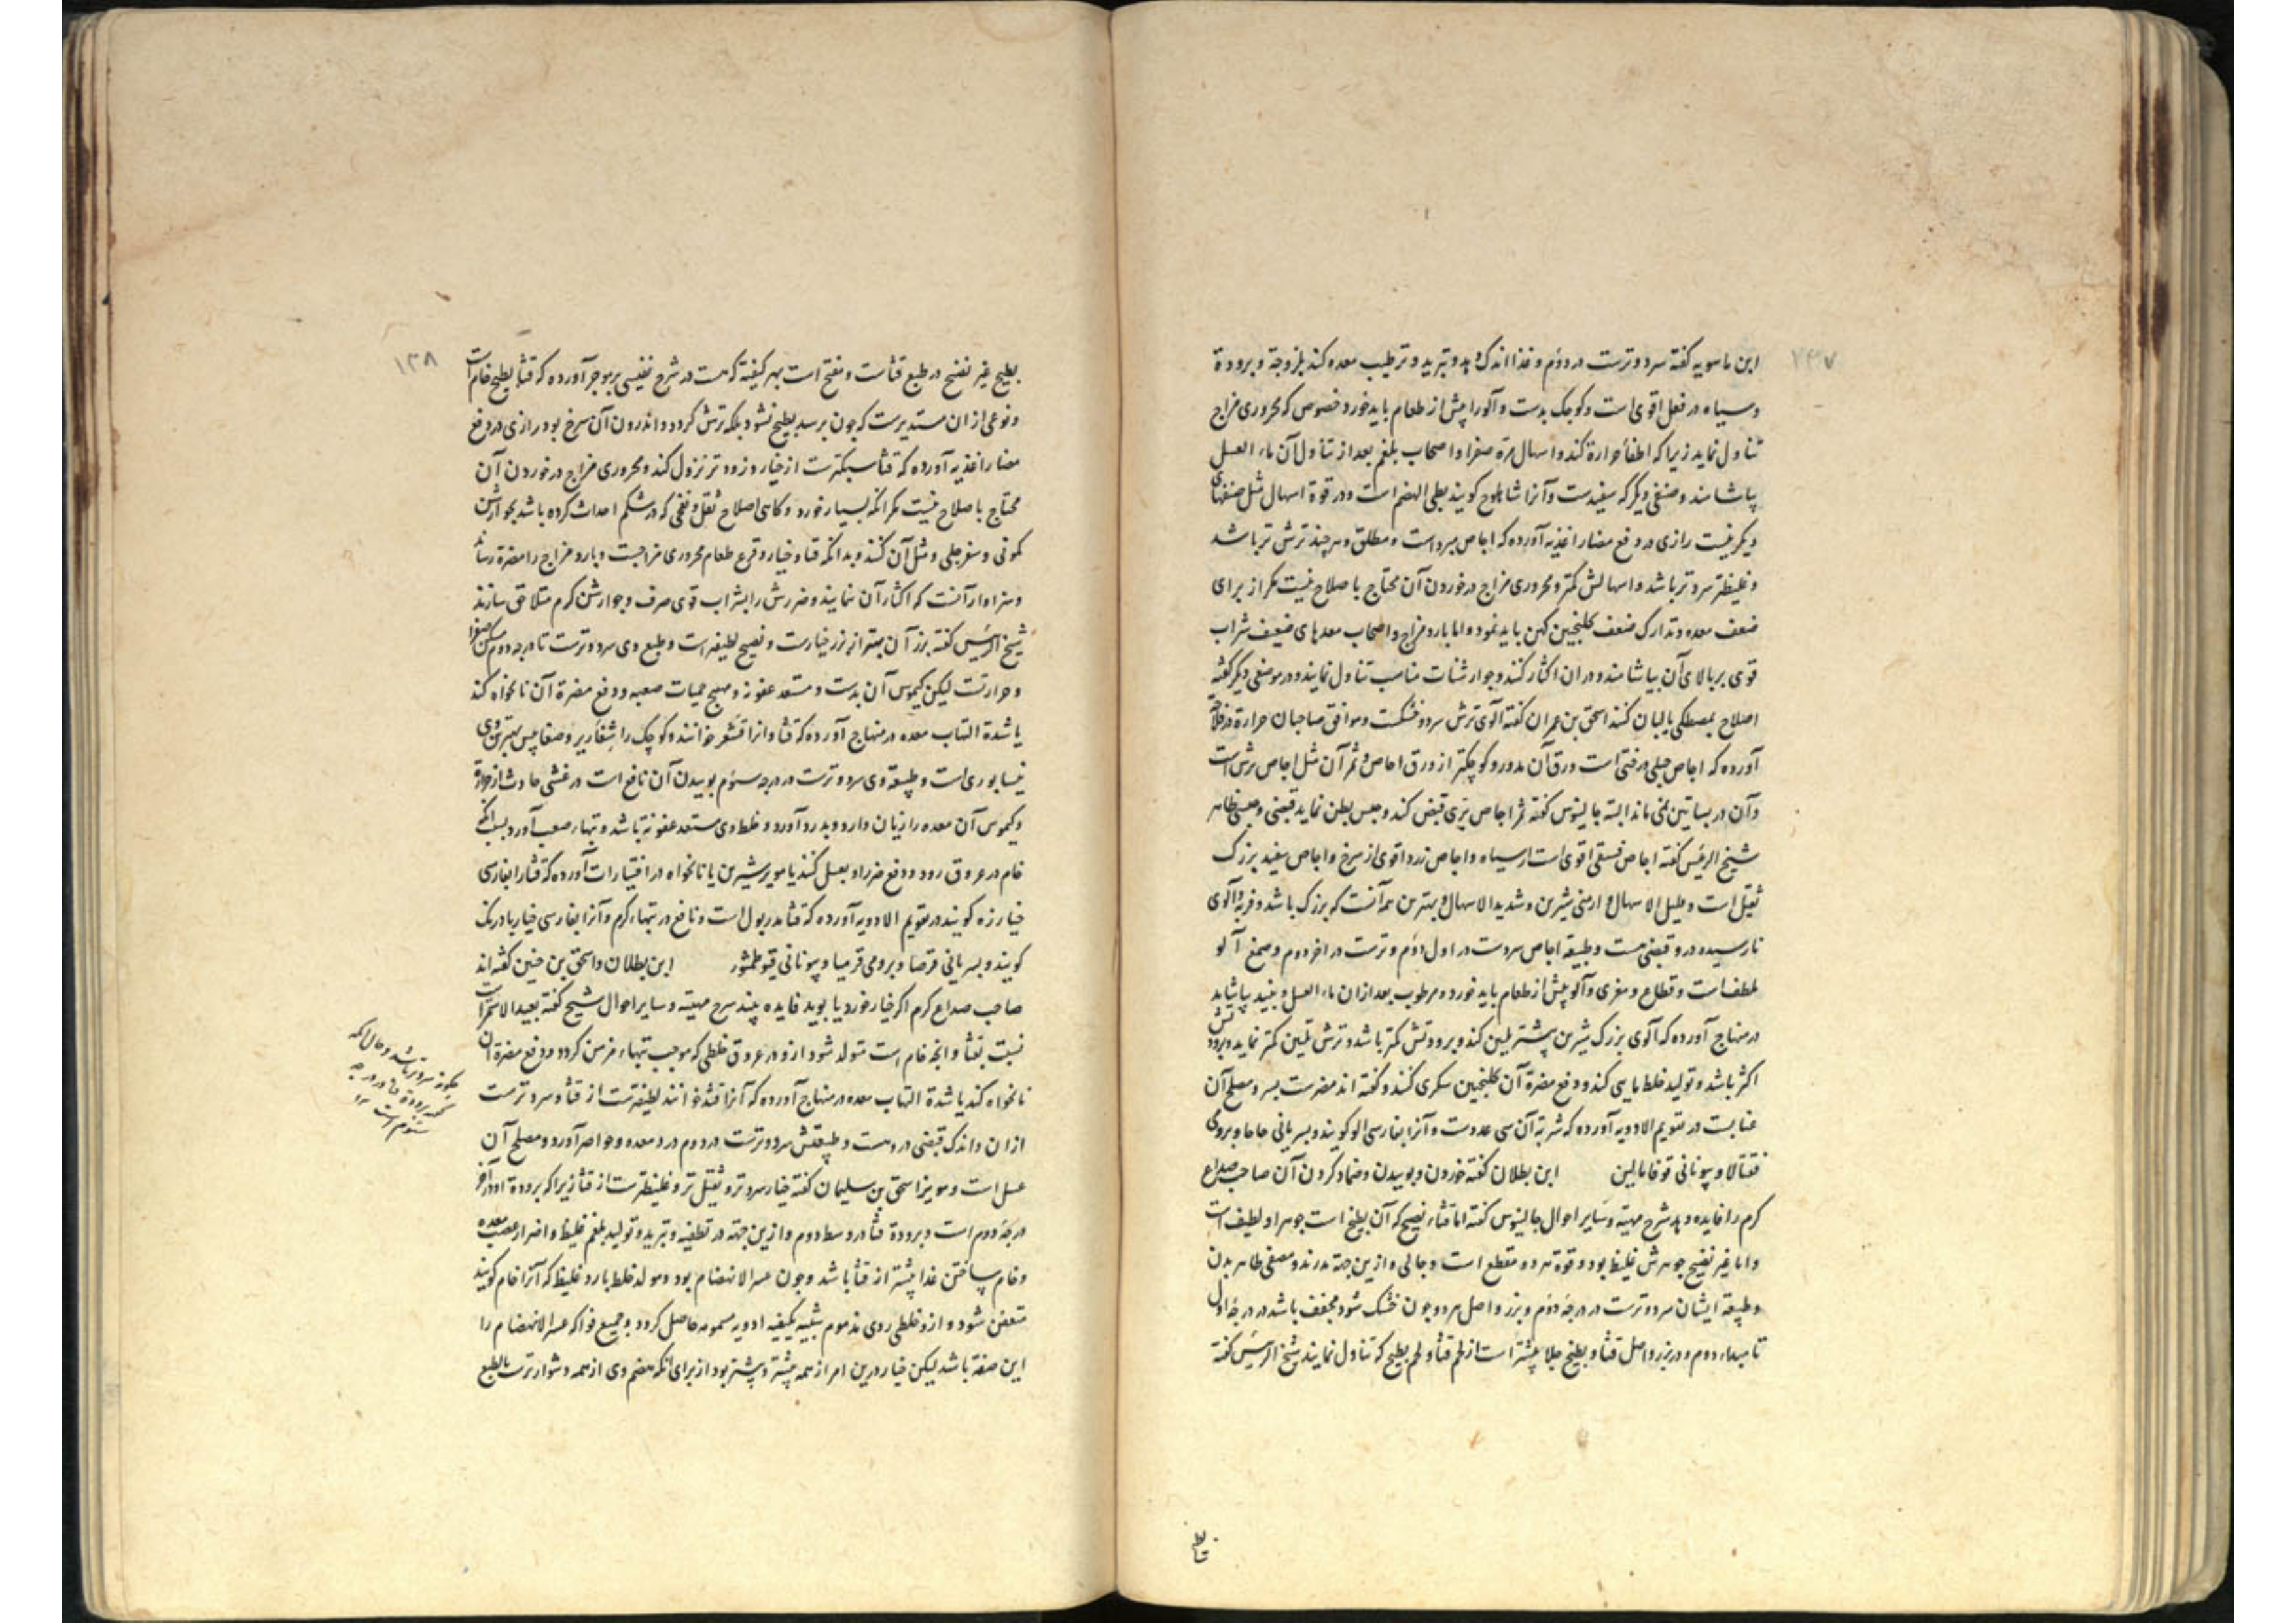 ۲۳۷
ابن ماسویه گفته سرد و ترست در دوم و غذا اندک دهد و تبرید و ترطیب معده کند بلزوجة و برودة
و سیاه در فعل اقوی است و کوچک بدست و آلو را پیش از طعام باید خورد خصوص که محروری مزاج
تناول نماید زیرا که اطفأ حرارة کند و اسهال مرّه صفرا و اصحاب بلغم بعد از تناول آن ماء العسل
بیاشامند و صنفی دیگر که سفیدست و آنرا شاهلوج گویند بطی الهضم است و در قوة اسهال مثل صنفهای
دیگر نیست رازی در دفع مضار اغذیه آورده که اجاص مبرد است و مطلق و هر چند ترش تر باشد
و غلیظتر سرد تر باشد و اسهالش کمتر و محروری مزاج در خوردن آن محتاج باصلاح نیست مگر از برای
ضعف معده و تدارک ضعف بگلنجبین کهن باید نمود و اما بارد مزاج و اصحاب معدهای ضعیف شراب
قوی بر بالای آن بیاشامند و در ان اکثار نکنند و جوارشنات مناسب تناول نمایند و در موضعی دیگر گفته
اصلاح بمصطکی یا لبان کنند اسحق بن عمران گفته آلوی ترش سرد و خشکست و موافق صاحبان حرارة در فلاحة
آورده که اجاص جبلی درختی است ورق آن مدور و کوچکتر از ورق اجاص و ثمر آن مثل اجاص ترش است
و آن در بساتین نمی ماند البته جالینوس گفته ثمر اجاص برّی قبض کند و حبس بطن نماید قبضی و حبسی ظاهر
شیخ الرئیس گفته اجاص فستقی اقوی است از سیاه و اجاص زرد اقوی از سرخ و اجاص سفید بزرک
ثقیل است و قلیل الاسهال و ارمنی شیرین و شدید الاسهال و بهترین همه آنست که بزرک باشد و فربه و آلوی
نارسیده درو قبضی هست و طبیعة اجاص سردست در اول دوّم و ترست در آخر دوم و صمغ آلو
ملطف است و قطاع و مغری و آلو پیش از طعام باید خورد و مرطوب بعد از ان ماء العسل و نبید بیاشامد
در منهاج آورده که آلوی بزرک شیرین بیشتر تلیین کند و برودتش کمتر باشد و ترش تلیین کمتر نماید و برودتش
اکثر باشد و تولید خلط مایی کند و دفع مضرة آن بگلنجبین سکری کنند و گفته اند مضرست بسر و مصلح آن
عنابست در تقویم الادویه آورده که شربة آن سی عددست و آنرا بفارسی الو گویند و بسریانی حاحا و برومی
ققتالا و بیونانی قوقامالین ابن بطلان گفته خوردن و بوییدن و ضماد کردن آن صاحب صداع
کرم را فایده دهد شرح مهیته و سایر احوال جالینوس گفته اما قثاء نضیج که آن بطیخ است جوهر او لطیف است
و اما غیر نضیج جوهرش غلیظ بود و قوة هر دو مقطع است و جالی و ازین جهة مدرند و مصفی ظاهر بدن
و طبیعة ایشان سرد و ترست در درجۀ دوّم و بزر و اصل هر دو چون خشک شود مجفف باشد در درجۀ اوّل
تا مبداء دوم و در بزر و اصل قثأ و بطیخ جلا بیشتر است از لحم قثأ و لحم بطیخ که تناول نمایند شیخ الرئیس گفته
۱۳۸
بطیخ غیر نضیج در طبع قثاست و مفتح است بهر کیفیة که هست در شرح نفیسی بر موجز آورده که قثأ بطیخ خام است
و نوعی از ان مستدیرست که چون برسد بطیخ نشود بلکه ترش گردد و اندرون آن سرخ بود رازی در دفع
مضار اغذیه آورده که قثأ سبکترست از خیار و زود تر نزول کند و محروری مزاج در خوردن آن
محتاج باصلاح نیست مگر آنکه بسیار خورد و گاهی اصلاح ثقل و نفخی که در شکم احداث کرده باشد بجوارشن
کمونی و سفرجلی و مثل آن کنند و بدانکه قثا و خیار و قرع طعام محروری مزاجست و بارد مزاج را مضرة رساند
و سزاوار آنست که اکثار آن ننمایند و ضررش را بشراب قوی صرف و جوارشن گرم متلاقی سازند
شیخ الرئیس گفته بزر آن بهتر از بزر خیارست و نضیج لطیفست و طبع وی سرد و ترست تا درجه دوم مسکن صفرا
و حرارتست لیکن کیموس آن بدست و مستعد عفونة و مهیج حمیات صعبه و دفع مضرة آن نانخواه کند
یا شدة التهاب معده در منهاج آورده که قثأ و انرا قشعر خوانند و کوچک را شعاریر و ضغابیس بهترین وی
نیسابوری است و طبیعة وی سرد و ترست در درجه سوّم بوییدن آن نافع است در غشی حادث از حرارة
و کیموس آن معده را زیان دارد و بدرد آورد و خلط وی مستعد عفونة باشد و تبهاء صعب آورد بسبب آنکه
خام در عروق رود و دفع ضرر او بعسل کنند یا مویز شیرین یا نانخواه در اختیارات آورده که قثأ را بفارسی
خیارزه گویند در تقویم الادویه آورده که قثأ مدر بول است و نافع در تبهاء گرم و آنرا بفارسی خیار بادرنک
گویند و بسریانی قرصا و برومی قرمیا و بیونانی قیوطمئور ابن بطلان و اسحق بن حنین گفته اند
صاحب صداع گرم اگر خیار خورد یا بوید فایده بیند شرح مهیته و سایر احوال شیخ گفته بعید الاستمرا است
نسبت بقثأ و آنچه خام است متولد شود ازو در عروق خلطی که موجب تبهاء مزمن گردد و دفع مضرة آن
نانخواه کند یا شدة التهاب معده در منهاج آورده که آنرا قثد خوانند لطیفترست از قثأ و سرد ترست
ازان و اندک قبضی دروست و طبیعتش سرد و ترست در دوم درد معده و خواصر آورد و مصلح آن
عسل است و مویز اسحق بن سلیمان گفته خیار سرد تر و ثقیل تر و غلیظترست از قثأ زیرا که برودة او در آخر
درجۀ دوم است و برودة قثأ در وسط دوم و ازین جهته در تطفیه و تبرید و تولید بلغم غلیظ و اضرار عصب معده
و خام ساختن غذا بیشتر از قثأ باشد و چون عسر الانهضام بود و مولد خلط بارد غلیظ که آنرا خام گویند
متعفن شود و ازو خلطی ردی مذموم شبیه بکیفیه ادویه مسمومه حاصل گردد و جمیع فواکه عسر الانهضام را
این صفة باشد لیکن خیار درین امر از همه بیشتر و پیشتر بود از برای آنکه هضم وی از همه دشوار ترست بالطبع